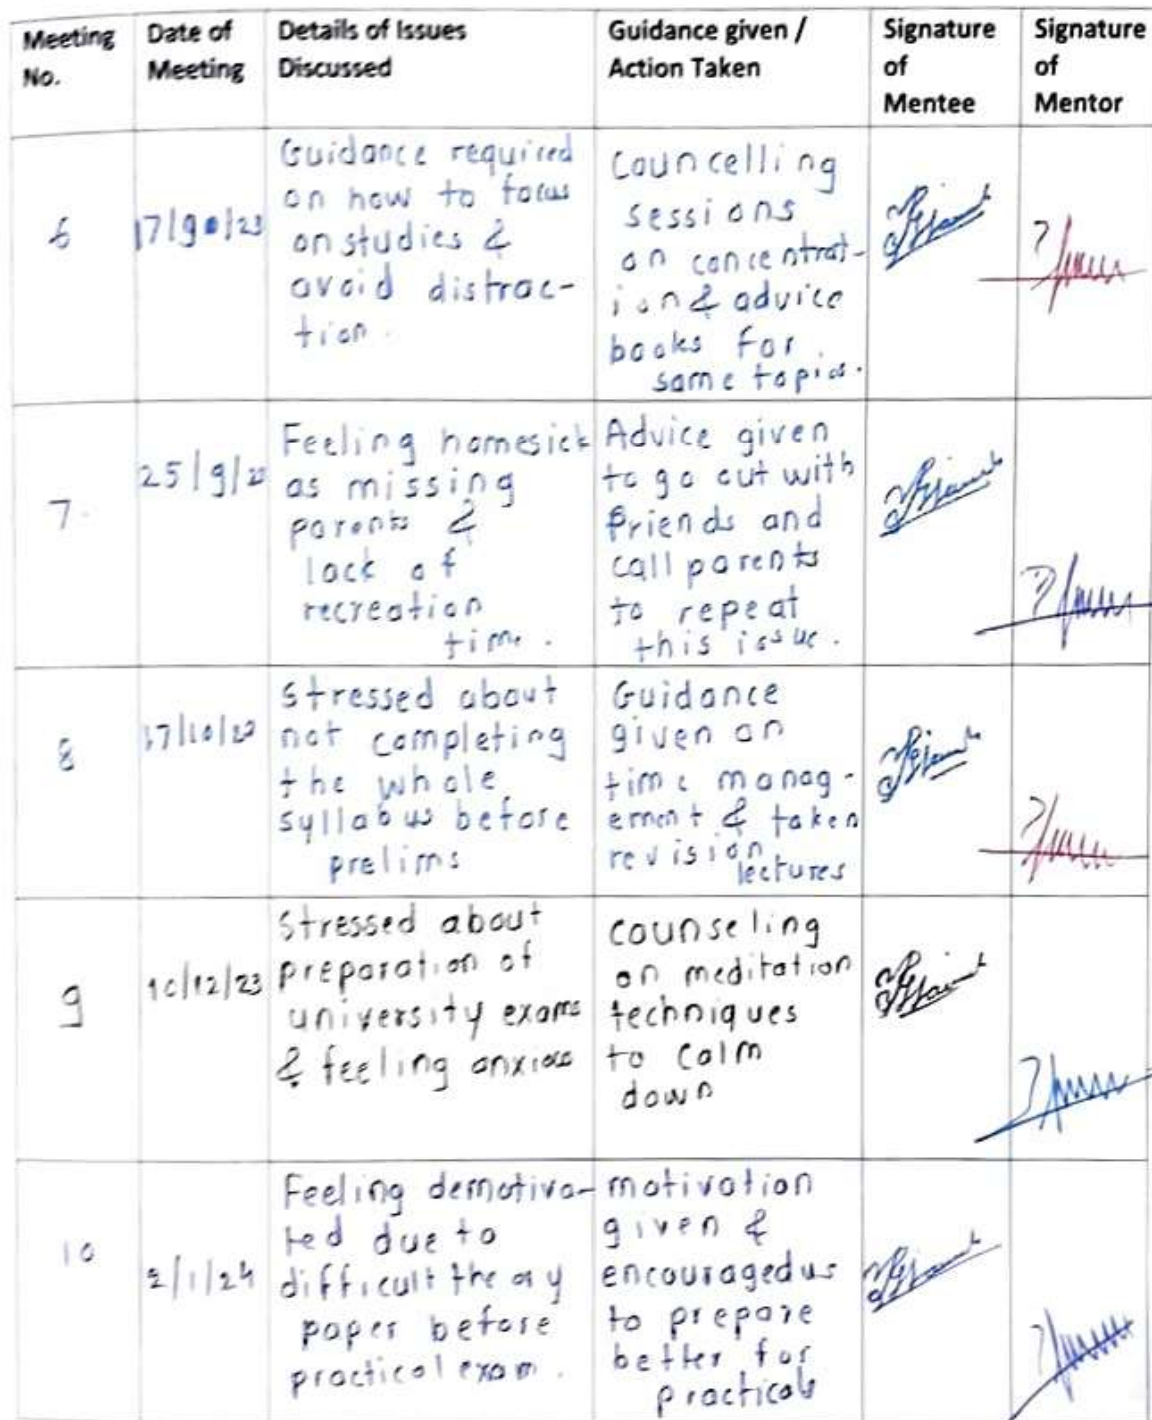 Meeting No.
Date of Meeting
Details of Issues Discussed
Guidance given / Action Taken
Signature of Mentee
Signature of Mentor
6
Guidance required
on how to focus
on studies &
avoid distrac-
tion.
Councelling
sessions
on concentrat-
ion & advice
books for
same topics.
7.
25/9/23
Feeling homesick
as missing
parents &
lack of
recreation
time.
Advice given
to go out with
friends and
call parents
to repeat
this issue.
8
17/10/23
Stressed about
not completing
the whole
syllabus before
prelims
Guidance
given on
time manag-
ement & taken
revision
lectures
9
10/12/23
Stressed about
preparation of
university exams
& feeling anxious
counseling
on meditation
techniques
to calm
down
10
2/1/24
Feeling demotiva-
ted due to
difficult theory
paper before
practical exam.
motivation
given &
encouraged us
to prepare
better for
practicals